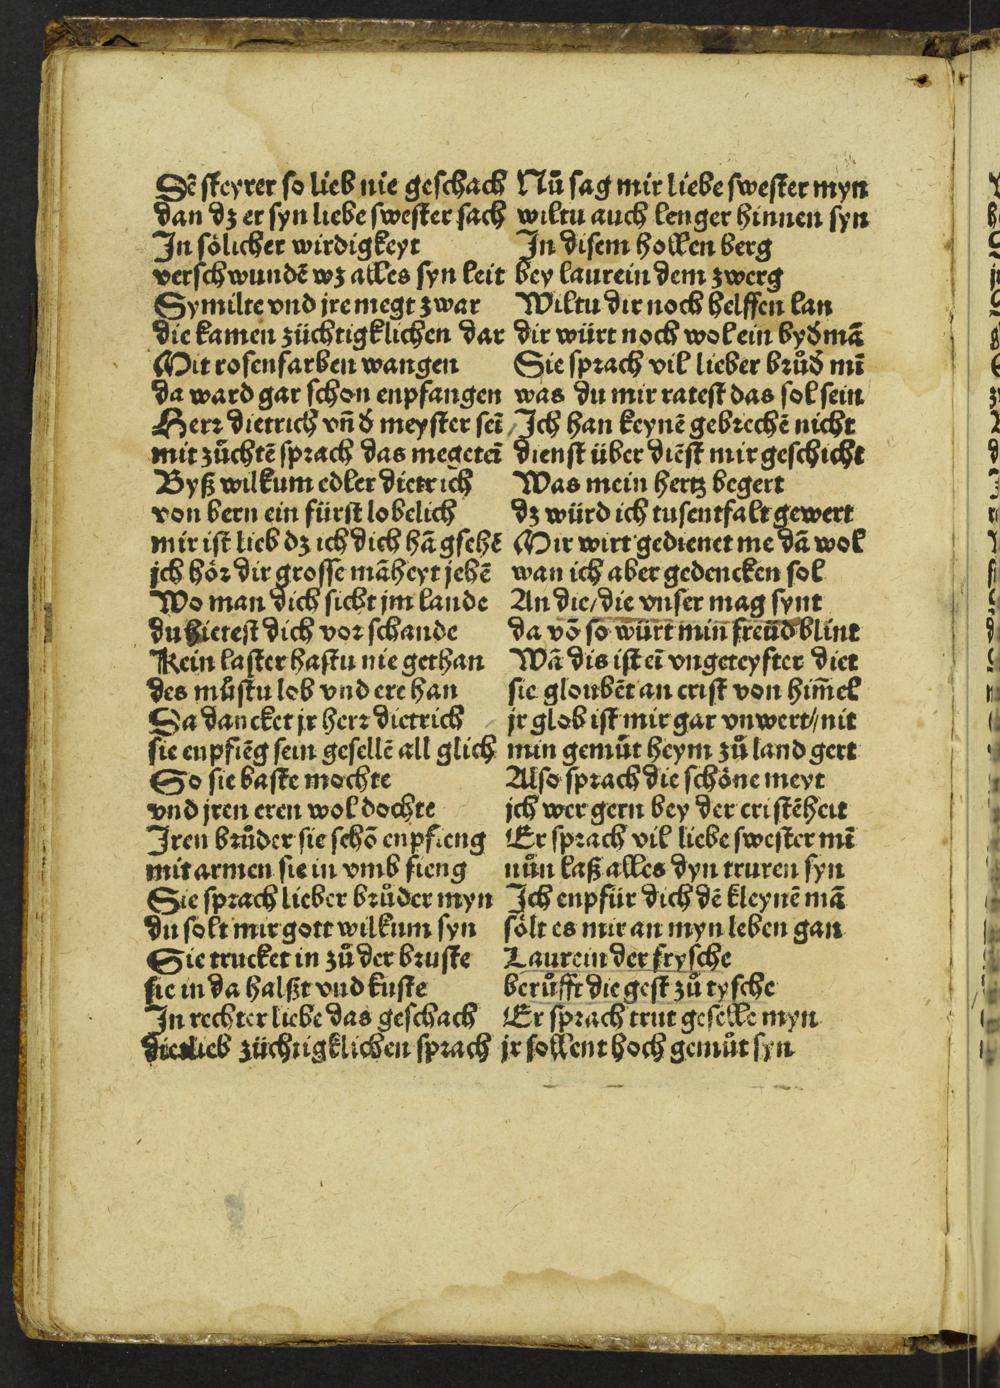 Dē steyrer so lieb nie geschach
dan dz er syn liebe swester sach
In sölicher wirdigkeyt
verschwundē wz alles syn leit
Symilte vnd jre megt zwar
die kamen züchtigklichen dar
Mit rosenfarben wangen
da ward gar schon enpfangen
Herr dietrich vn̄ d̕ meyster sei̅
mit zůchtē sprach das megetei̅
Byß wilkum edler dietrich
von bern ein fürst lobelich
mir ist lieb dz ich dich hā gsehē
jch hör dir grosse māheyt jehē
Wo man dich sicht jm lande
du hietest dich vor schande
Kein laster hastu nie gethan
des můstu lob vnd ere han
Da dancket jr herr dietrich
sie enpfiēg sein gesellē all glich
So sie baste mochte
vnd jren eren wol dochte
Iren brůder sie schō enpfieng
mit armen sie in vmb fieng
Sie sprach lieber brůder myn
du solt mir gott wilkum syn
Sie trucket in zů der bruste
sie in da halßt vnd kuste
In rechter liebe das geschach
dietlieb züchtigklichen sprach
Nů sag mir liebe swester myn
wiltu auch lenger hinnen syn
In disem hollen berg
bey laurein dem zwerg
Wiltu dir noch helffen lan
dir würt noch wol ein byd̕mā
Sie sprach vil lieber brůd̕ mi̅
was du mir ratest das sol sein
Ich han keynē gebrechē nicht
dienst über diēst mir geschicht
Was mein hertz begert
dz würd ich tusentfalt gewert
Mir wirt gedienet me dā wol
wan ich aber gedencken sol
An die/die vnser mag synt
da vō so würt min freüd blint
Wā dis ist ei̅ vngeteyfter diet
sie gloubēt an crist von him̄el
jr glob ist mir gar vnwert/nit
min gemůt heym zů land gert
Also sprach die schöne meyt
jch wer gern bey der cristēheit
Er sprach vil liebe swester mi̅
nůn laß alles dyn truren syn
Ich enpfür dich dē kleynē mā
sölt es mir an myn leben gan
Laurein der frysche
berůfft die gest zů tysche
Er sprach trut geselle myn
jr sollent hoch gemůt syn